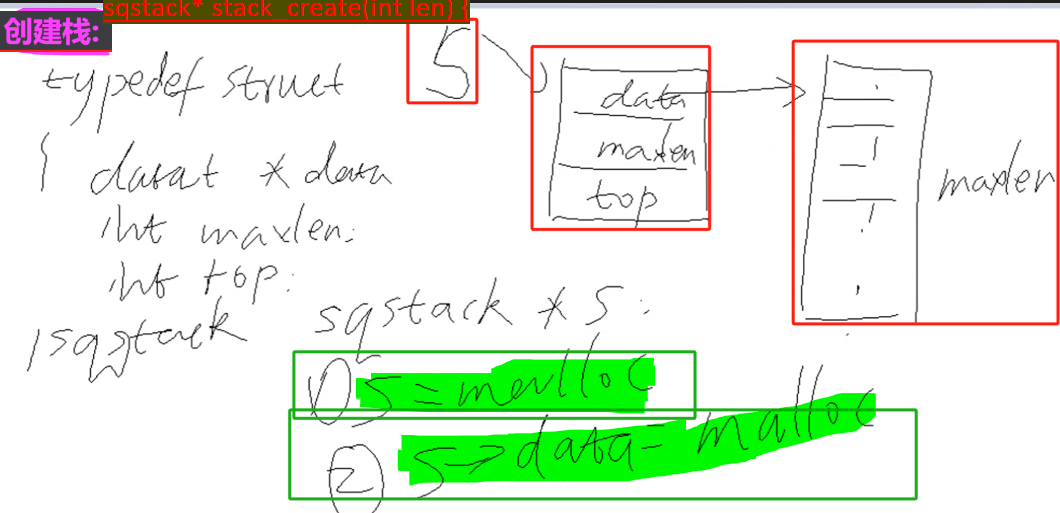 sqstack* stack_create(int len) {
创建栈:
typedef struct
{ datat * data
int maxlen;
int top;
}sqstack
S
data
maxlen
top
maxlen
sqstack * S;
① S = malloc
② S->data = malloc